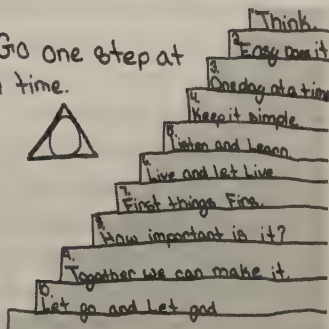 Go one step at
a time.
1. Think.
2. Easy Does it
3. One day at a time
4. Keep it simple.
5. Listen and Learn
6. Live and let Live
7. First things Firs.
8. How important is it?
9. Together we can make it.
10. Let go and Let god